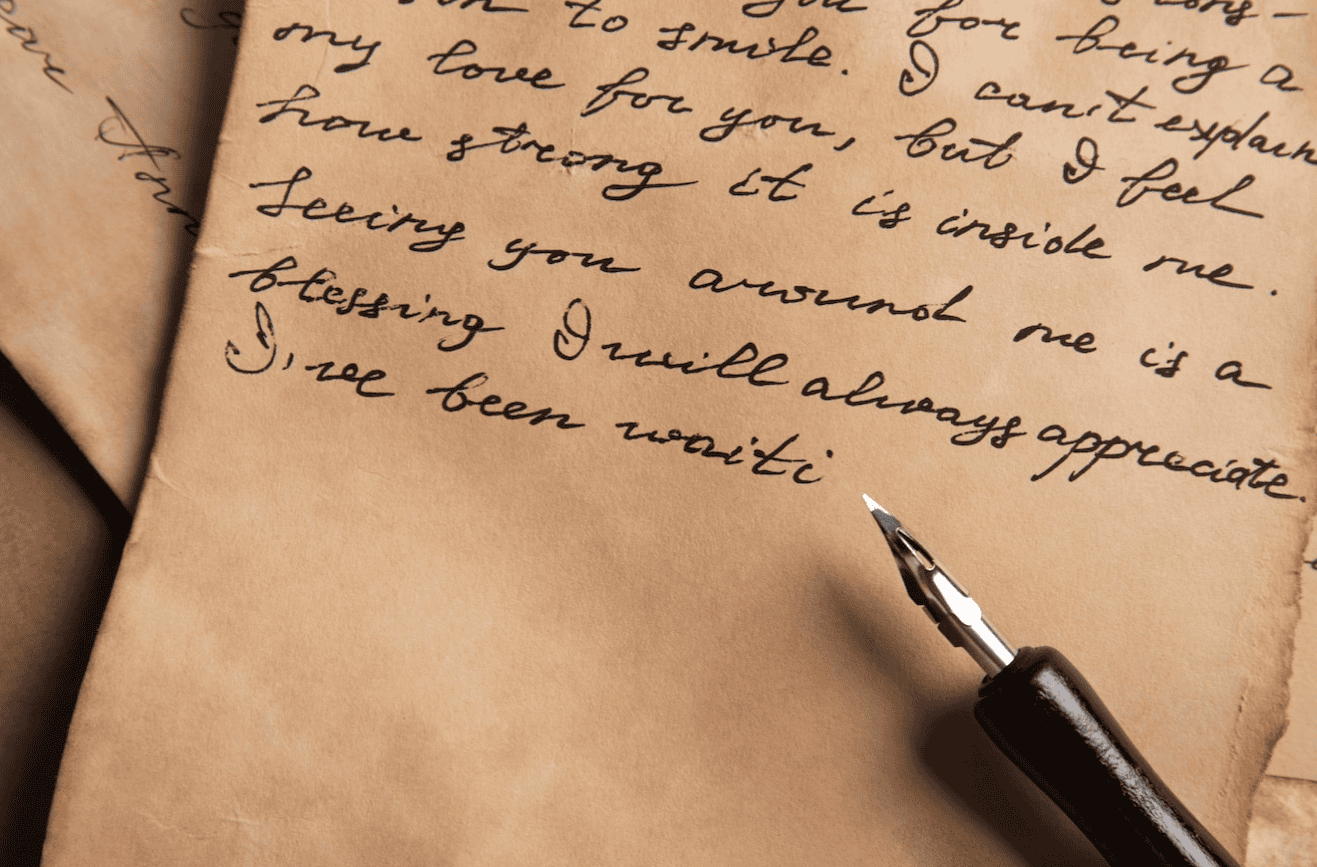 ear Ann
you for being a
to smile. I can't explain
my love for you, but I feel
how strong it is inside me.
Seeing you around me is a
blessing I will always appreciate.
I've been waiti